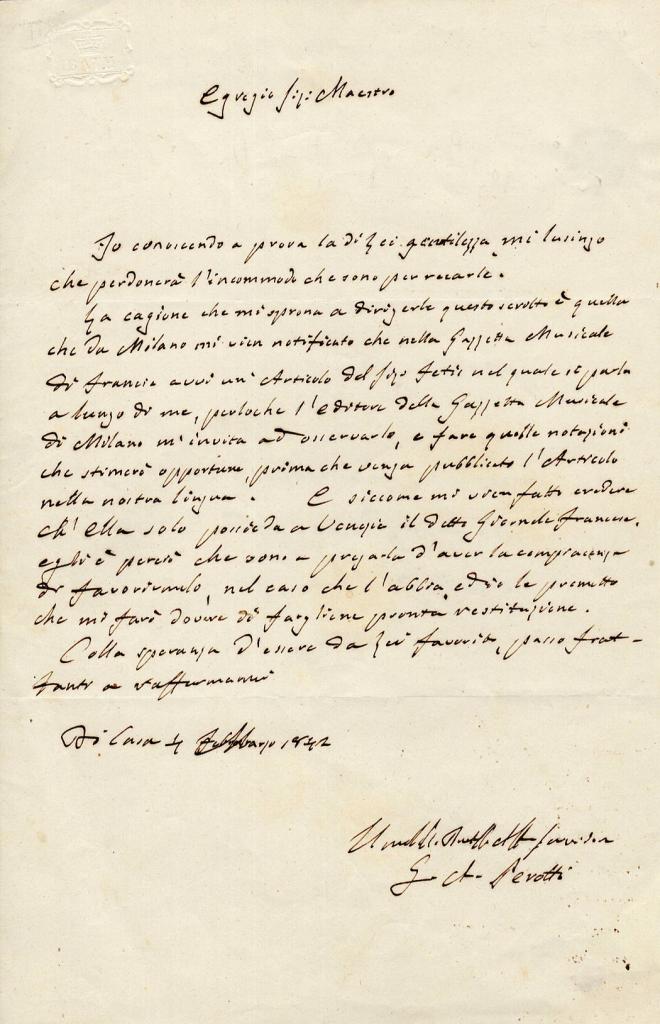 BATH
Egregio Sigr Maestro
Io conoscendo a prova la di Lei gentilezza mi lusingo
che perdonerà l'incommodo che sono per recarle.
La cagione che mi sprona a dirigerle questo scritto è quella
che da Milano mi vien notificato che nella Gazzetta Musicale
di Francia avvi un' Articolo del Sigr Fetis nel quale si parla
a lungo di me, perloche l'Editore della Gazzetta Musicale
di Milano m'invita ad osservarlo, e fare quelle notazioni
che stimerò opportune, prima che venga pubblicato l'Articolo
nella nostra lingua. E siccome mi vien fatto credere
ch'Ella solo possieda a Venezia il detto Giornale francese,
egli è perciò che sono a pregarla d'aver la compiacenza
di favorirmelo, nel caso che l'abbia, ed io le prometto
che mi farò dovere di fargliene pronta restituzione.
Colla speranza d'essere da Lei favorito, passo frat-
tanto a raffermarmi
Di Casa 4 Febbrajo 1842
Umill. Servidor
G. A. Perotti